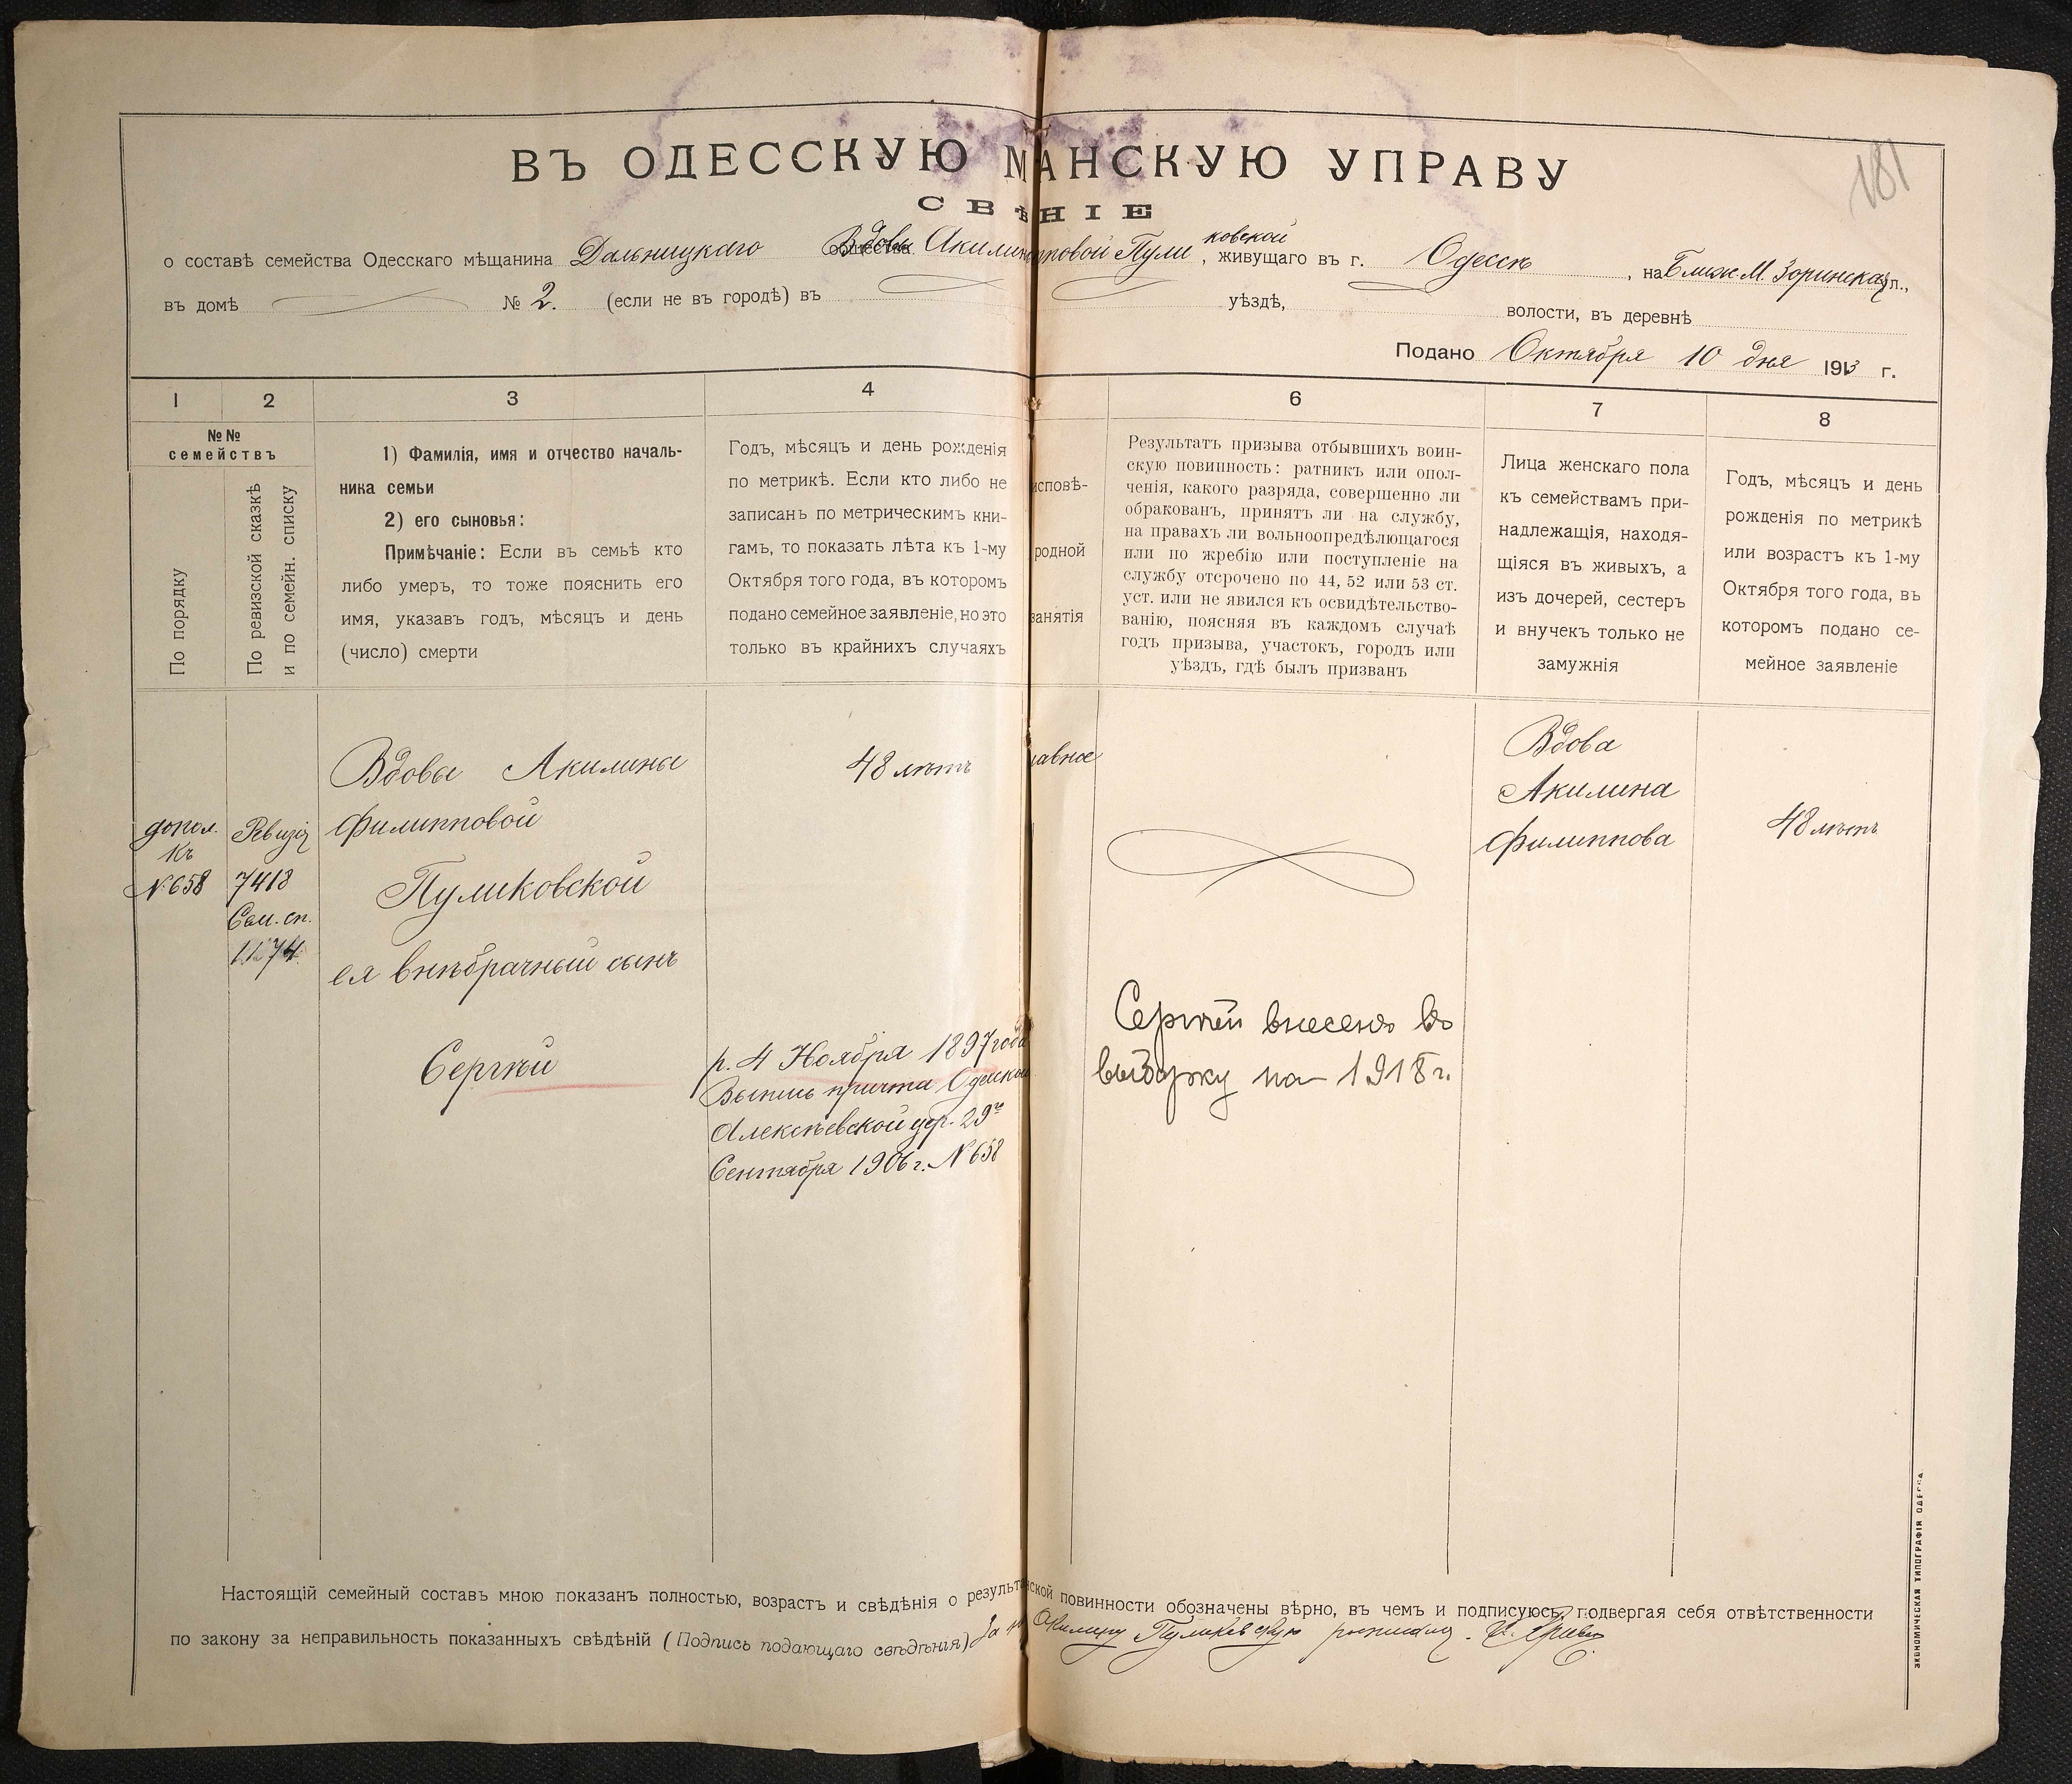 181
ВЪ ОДЕССКУЮ МАНСКУЮ УПРАВУ
СВѢНІЕ
о составѣ семейства Одесскаго мѣщанина Дальницкаго общества Вдовы Акилин пповой Пуликовской, живущаго въ г. Одессѣ, на Ближ. М. Зоринская ул.,
въ домѣ № 2. (если не въ городѣ) въ уѣздѣ, волости, въ деревнѣ
Подано Октября 10 дня 1913 г.
1 2 3 4 6 7 8
№№ семействъ
По порядку
По ревизской сказкѣ и по семейн. списку
1) Фамилія, имя и отчество началь-
ника семьи
2) его сыновья:
Примѣчаніе: Если въ семьѣ кто
либо умеръ, то тоже пояснить его
имя, указавъ годъ, мѣсяцъ и день
(число) смерти
Годъ, мѣсяцъ и день рожденія
по метрикѣ. Если кто либо не
записанъ по метрическимъ кни-
гамъ, то показать лѣта къ 1-му
Октября того года, въ которомъ
подано семейное заявленіе, но это
только въ крайнихъ случаяхъ
исповѣ-
родной
занятія
Результатъ призыва отбывшихъ воин-
скую повинность: ратникъ или опол-
ченія, какого разряда, совершенно ли
обракованъ, принятъ ли на службу,
на правахъ ли вольноопредѣляющагося
или по жребію или поступленіе на
службу отсрочено по 44, 52 или 53 ст.
уст. или не явился къ освидѣтельство-
ванію, поясняя въ каждомъ случаѣ
годъ призыва, участокъ, городъ или
уѣздъ, гдѣ былъ призванъ
Лица женскаго пола
къ семействамъ при-
надлежащія, находя-
щіяся въ живыхъ, а
изъ дочерей, сестеръ
и внучекъ только не
замужнія
Годъ, мѣсяцъ и день
рожденія по метрикѣ
или возрастъ къ 1-му
Октября того года, въ
которомъ подано се-
мейное заявленіе
допол.
къ
№ 658
Ревизія
7418
Сем. сп.
1174
Вдова Акилина
Филипповой
Пуликовской
ея внѣбрачный сынъ
Сергѣй
48 лѣтъ
р. 4 Ноября 1897 года
Выпись причта Одесской
Алексѣевской цер. 29го
Сентября 1906 г. № 658
лавное
Сергѣй внесенъ въ
выборку на 1918 г.
Вдова
Акилина
Филиппова
48 лѣтъ
Настоящій семейный составъ мною показанъ полностью, возрастъ и свѣдѣнія о результа нской повинности обозначены вѣрно, въ чемъ и подписуюсь, подвергая себя отвѣтственности
по закону за неправильность показанныхъ свѣдѣній (Подпись подающаго свѣдѣнія) За Акилину Пуликовскую
ЭКОНОМИЧЕСКАЯ ТИПОГРАФІЯ ОДЕССА.